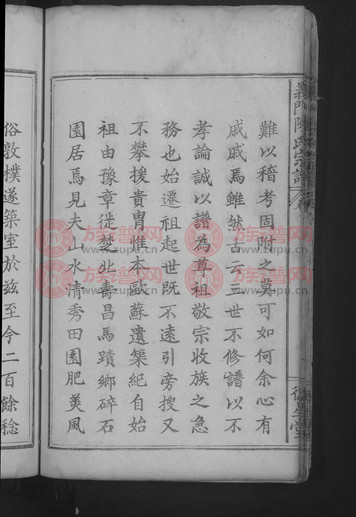 義門陳氏宗譜
難以稽考固附之莫可如何余心有
戚戚焉雖然古云三世不修譜以不
孝論誠以譜為尊祖敬宗收族之急
務也始遷祖起世既不遠引旁搜又
不攀援貴胄惟本歐蘇遺策紀自始
祖由豫章徙楚北壽昌馬蹟鄉碎石
園居焉見夫山水清秀田園肥美風
俗敦樸遂築室於茲至今二百餘稔
族谱网
www.zupu.cn